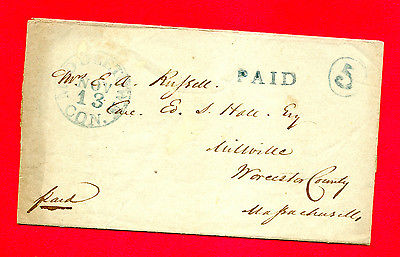 NOV
13
CON.
PAID
5
Mrs E. A. Russell
Care Ed. S. Hall. Esq
Millville
Worcester County
Massachusetts
Paid